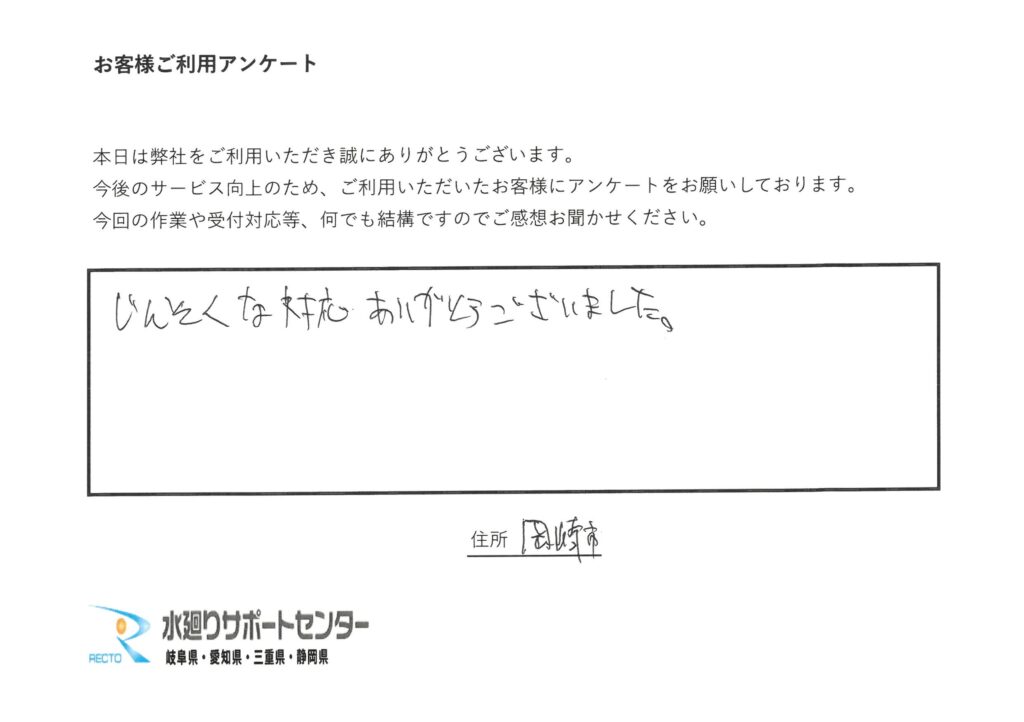 お客様ご利用アンケート
本日は弊社をご利用いただき誠にありがとうございます。
今後のサービス向上のため、ご利用いただいたお客様にアンケートをお願いしております。
今回の作業や受付対応等、何でも結構ですのでご感想お聞かせください。
じんそくな対応ありがとうございました。
住所 岡崎市
RECTO
水廻りサポートセンター
岐阜県・愛知県・三重県・静岡県